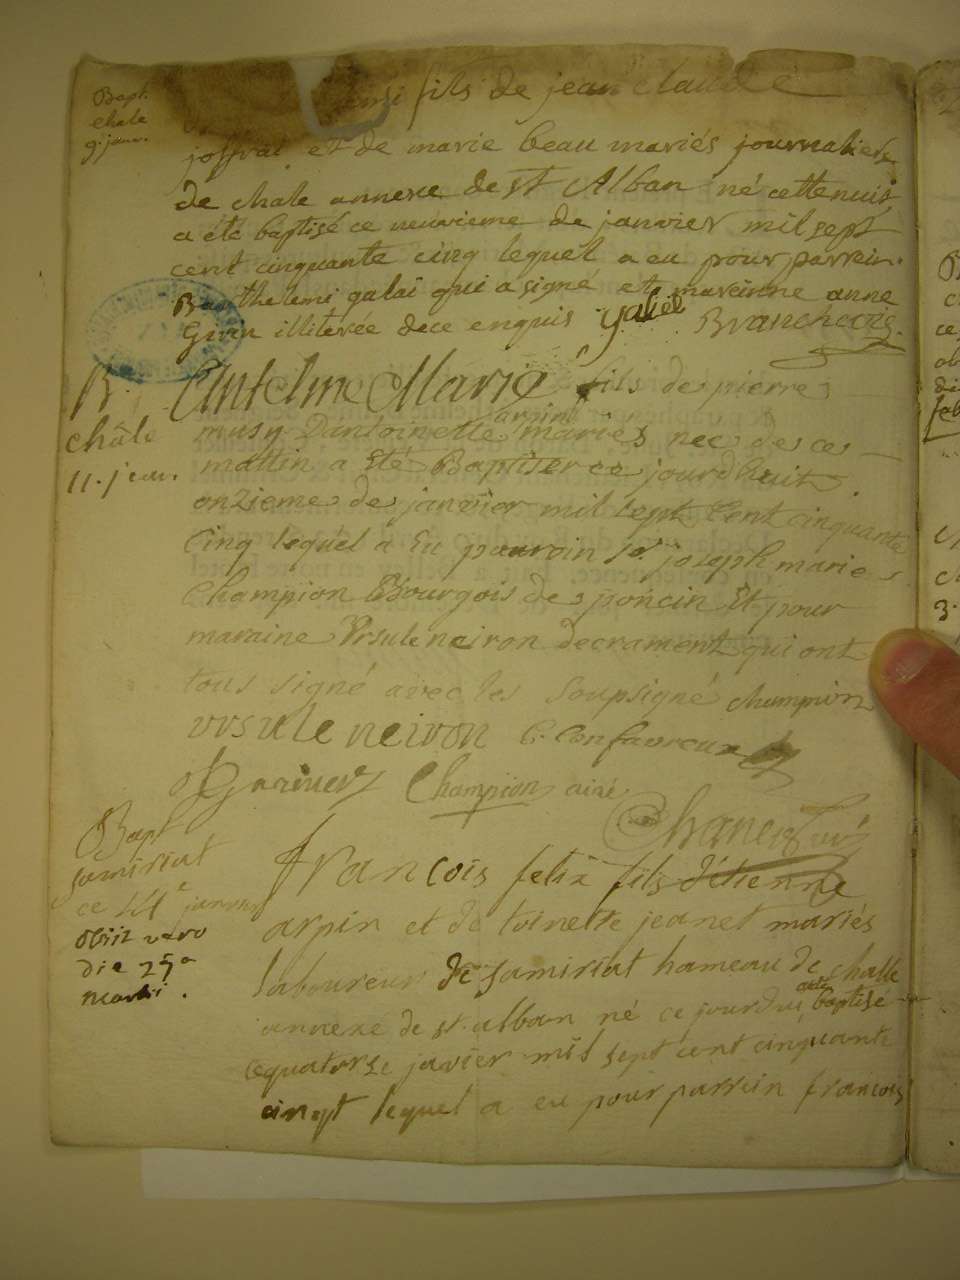 Bapt.
chale
9. janv.
fils de jean claude
joffrai et de marie beau mariés journaliers
de chale annexe de st Alban né cette nuit
a été baptisé ce neuvieme de janvier mil sept
cent cinquante cinq lequel a eu pour parrein
Barthelemi galai qui a signé et mareinne anne
illiteree de ce enquis galiei
B.
châle
11. jeanv.
Anselme Marie fils de pierre
arpin
musy Dantoinette mariés nee de ce
mattin a Eté Baptiser ce jourdhuit
onzieme de janvier mil sept Cent cinquante
Cinq lequél a Eu pauroin sr. joseph marie
Champion Bourgois de poncin Et pour
maraine Vrsule neiron decrament qui ont
tous signé avec les soupsigné champion
vrsule neiron C. Confavreux
Champion ainé
Bapt
samiriat
ce 14e janvier
obiit vero
die 25a
martii.
françois felix fils d'étienne
arpin et de toinette jeanet mariés
laboureur de samiriat hameau de challe
annexe de st. alban né ce jourdui baptise
cequatorze javier mil sept cent cinquante
cinqt lequel a eu pour parrein francois